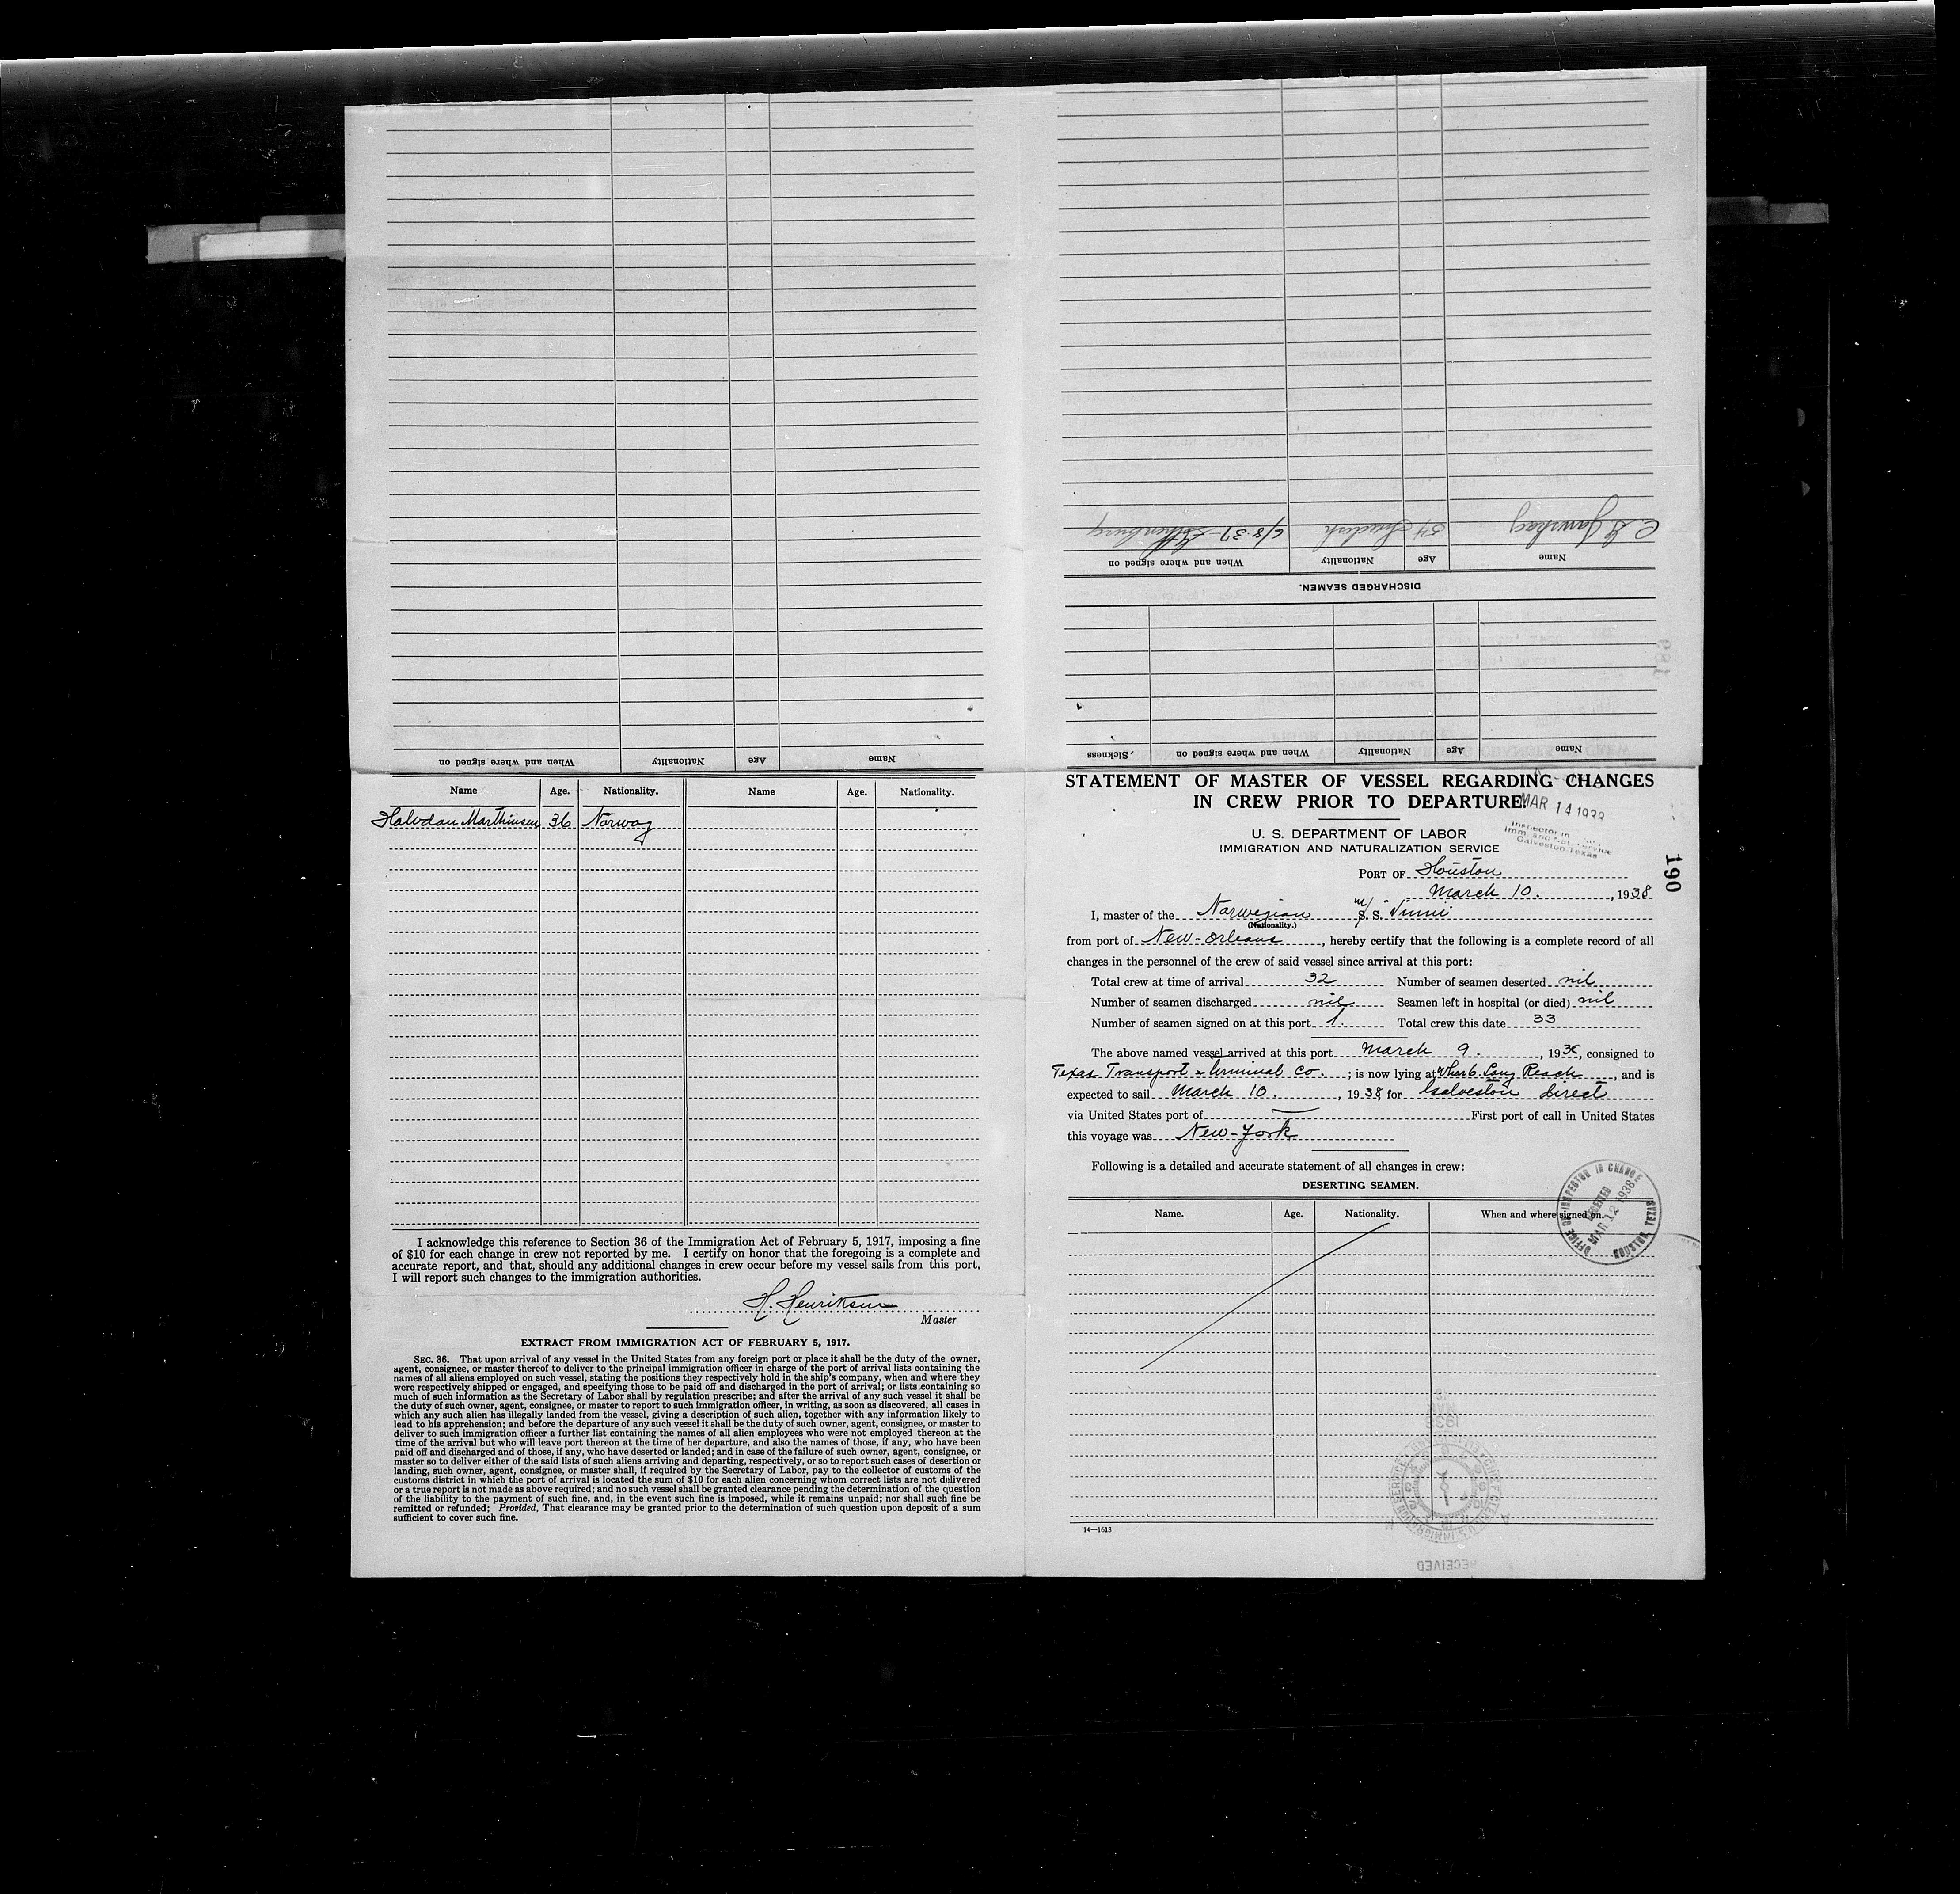 Name Age Nationality When and where signed on
Name Age Nationality When and where signed on Sickness.
DISCHARGED SEAMEN.
Name Age Nationality When and where signed on
54 Swedish 6/8-37 Gothenburg
189
Name Age. Nationality. Name Age. Nationality.
Halvdan Marthinsen 36 Norway
I acknowledge this reference to Section 36 of the Immigration Act of February 5, 1917, imposing a fine
of $10 for each change in crew not reported by me. I certify on honor that the foregoing is a complete and
accurate report, and that, should any additional changes in crew occur before my vessel sails from this port,
I will report such changes to the immigration authorities.
H. Henriksen
Master
EXTRACT FROM IMMIGRATION ACT OF FEBRUARY 5, 1917.
SEC. 36. That upon arrival of any vessel in the United States from any foreign port or place it shall be the duty of the owner,
agent, consignee, or master thereof to deliver to the principal immigration officer in charge of the port of arrival lists containing the
names of all aliens employed on such vessel, stating the positions they respectively hold in the ship's company, when and where they
were respectively shipped or engaged, and specifying those to be paid off and discharged in the port of arrival; or lists containing so
much of such information as the Secretary of Labor shall by regulation prescribe; and after the arrival of any such vessel it shall be
the duty of such owner, agent, consignee, or master to report to such immigration officer, in writing, as soon as discovered, all cases in
which any such alien has illegally landed from the vessel, giving a description of such alien, together with any information likely to
lead to his apprehension; and before the departure of any such vessel it shall be the duty of such owner, agent, consignee, or master to
deliver to such immigration officer a further list containing the names of all alien employees who were not employed thereon at the
time of the arrival but who will leave port thereon at the time of her departure, and also the names of those, if any, who have been
paid off and discharged and of those, if any, who have deserted or landed; and in case of the failure of such owner, agent, consignee, or
master so to deliver either of the said lists of such aliens arriving and departing, respectively, or so to report such cases of desertion or
landing, such owner, agent, consignee, or master shall, if required by the Secretary of Labor, pay to the collector of customs of the
customs district in which the port of arrival is located the sum of $10 for each alien concerning whom correct lists are not delivered
or a true report is not made as above required; and no such vessel shall be granted clearance pending the determination of the question
of the liability to the payment of such fine, and, in the event such fine is imposed, while it remains unpaid; nor shall such fine be
remitted or refunded; Provided, That clearance may be granted prior to the determination of such question upon deposit of a sum
sufficient to cover such fine.
STATEMENT OF MASTER OF VESSEL REGARDING CHANGES
IN CREW PRIOR TO DEPARTURE.
MAR 14 1938
Inspector in
Imm. and Nat. Service
Galveston Texas
U. S. DEPARTMENT OF LABOR
IMMIGRATION AND NATURALIZATION SERVICE
190
PORT OF Houston
March 10. , 1938
I, master of the Norwegian m/ S. S. "Vinni
(Nationality.)
from port of New-Orleans , hereby certify that the following is a complete record of all
changes in the personnel of the crew of said vessel since arrival at this port:
Total crew at time of arrival 32 Number of seamen deserted nil
Number of seamen discharged nil Seamen left in hospital (or died) nil
Number of seamen signed on at this port 1. Total crew this date 33
The above named vessel arrived at this port March 9. , 1938, consigned to
Texas Transport & Terminal Co. ; is now lying at Wharf 6. Long Reach , and is
expected to sail March 10. , 1938 for Galveston direct
via United States port of — First port of call in United States
this voyage was New-York
Following is a detailed and accurate statement of all changes in crew:
DESERTING SEAMEN.
OFFICE OF INSPECTOR IN CHARGE
RECEIVED
MAR 12 1938
HOUSTON TEXAS
Name. Age. Nationality. When and where signed on.
14—1613
RECEIVED